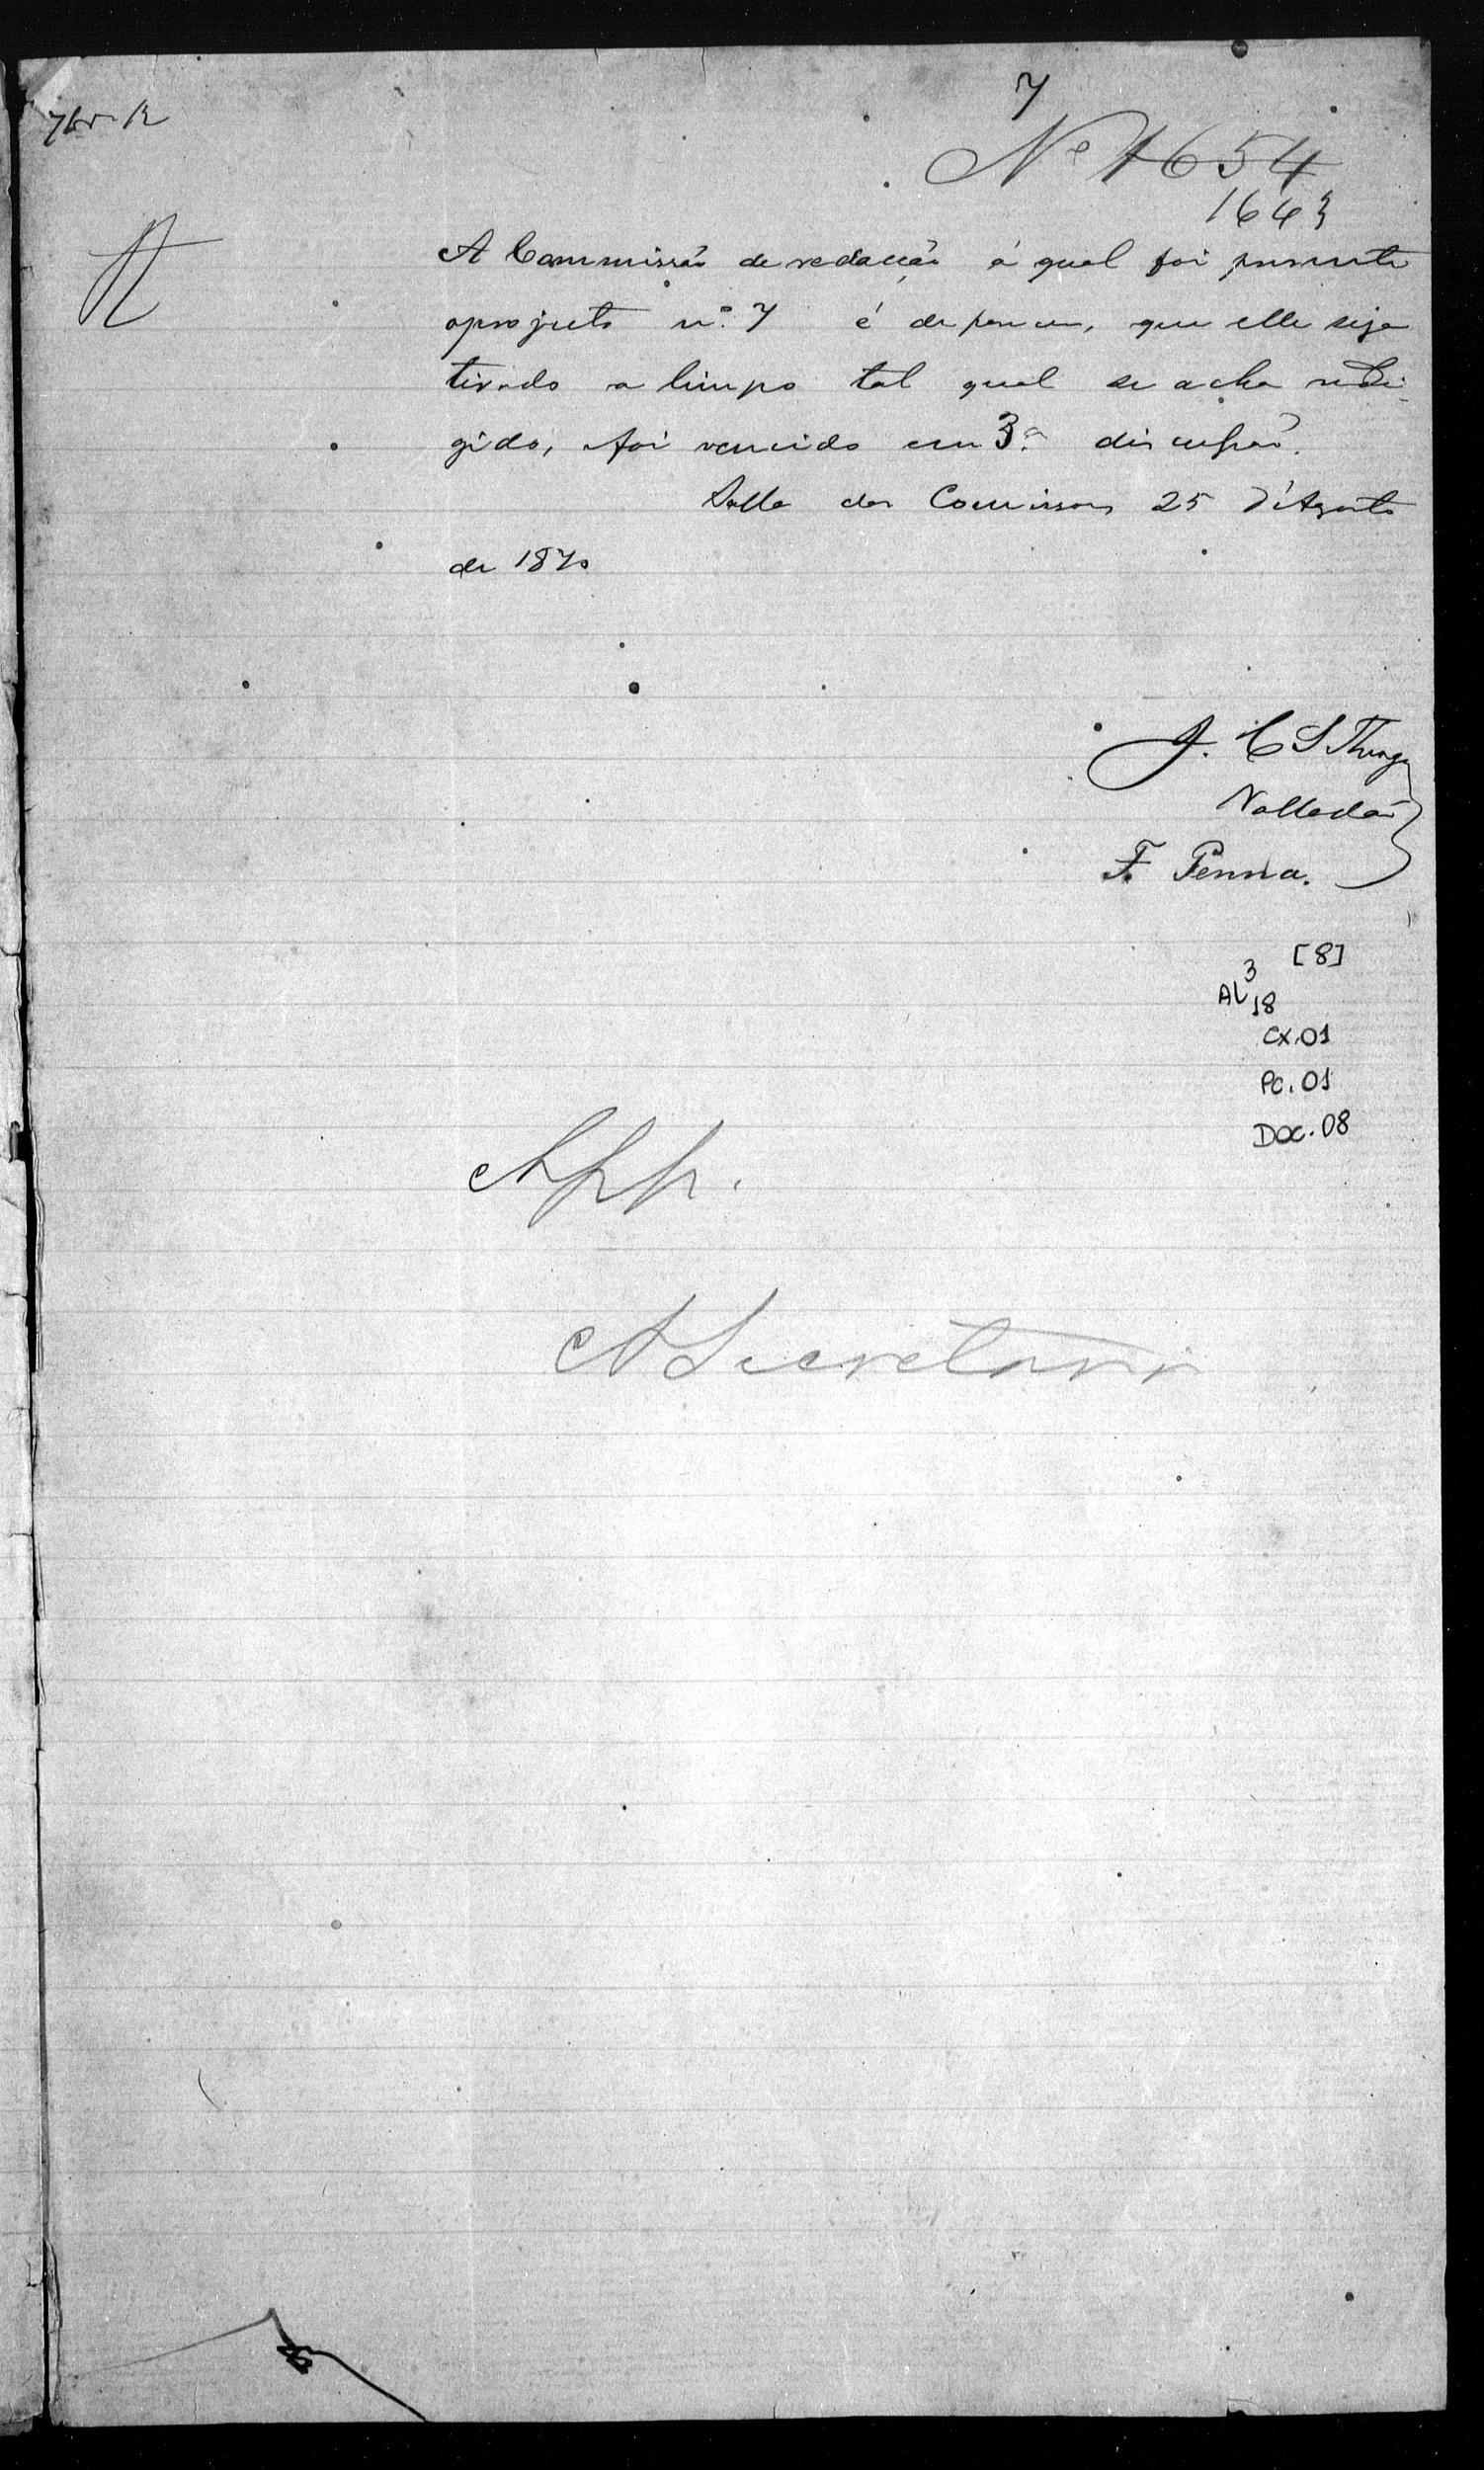 7
Nº 1654
1643
A Commissão de redacção á qual foi presente
o projecto nº 7 é de parecer, que elle seja
tirado a limpo tal qual se acha redi-
gido, e foi vencido em 3ª discussão.
Salla das Comissões 25 d'Agosto
de 1870
J. C S Thiago
Valladão
F. Penna.
[8]
AL 3
18
CX.01
Pc.01
DOC.08
App.
A Secretaria